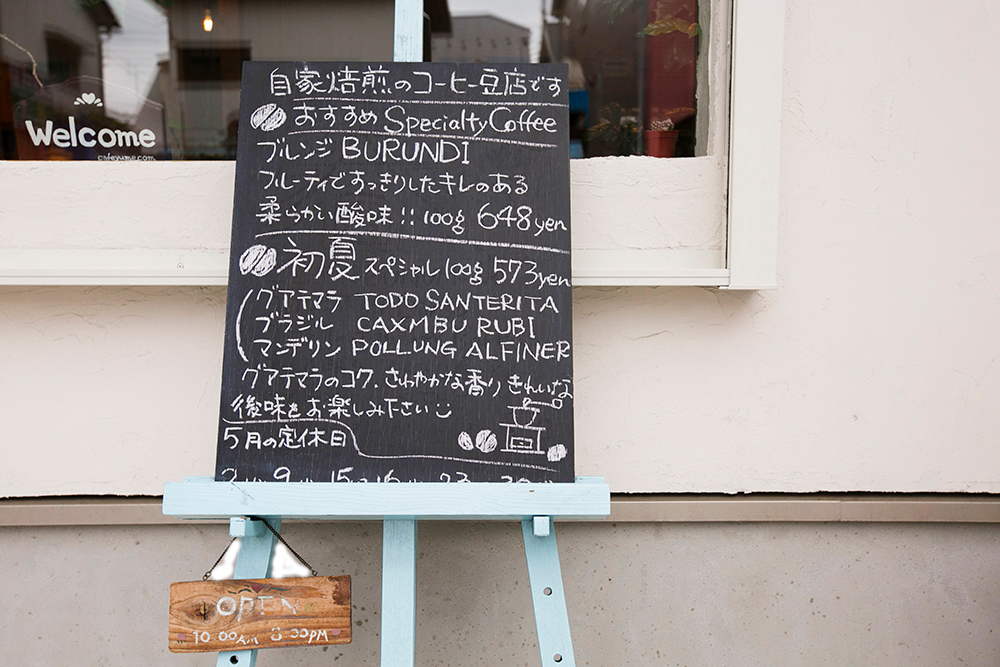 Welcome
cafeyume.com
自家焙煎のコーヒー豆店です
おすすめ Specialty Coffee
ブルンジ BURUNDI
フルーティですっきりしたキレのある
柔らかい酸味!! 100g 648yen
初夏 スペシャル 100g 573yen
グアテマラ TODO SANTERITA
ブラジル CAXMBU RUBI
マンデリン POLLUNG ALFINER
グアテマラのコク.さわやかな香り きれいな
後味をお楽しみ下さい
5月の定休日
OPEN
10:00AM 8:00PM